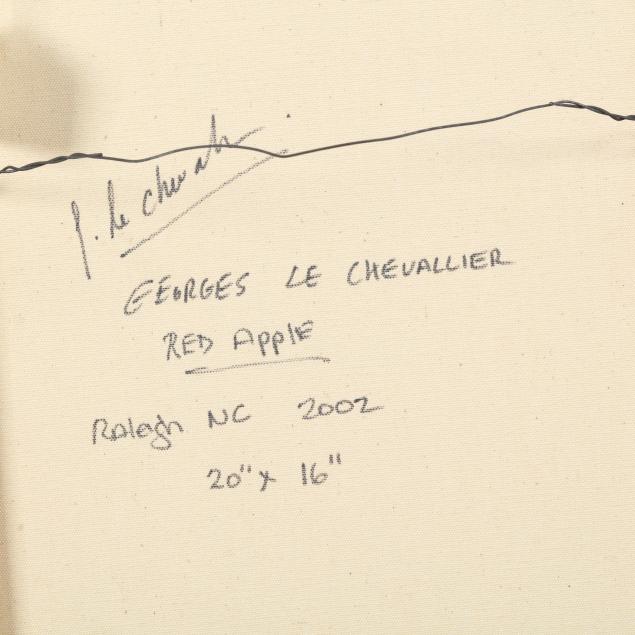 G. Le Cheval
GEORGES LE CHEVALLIER
RED Apple
Raleigh NC 2002
20" x 16"